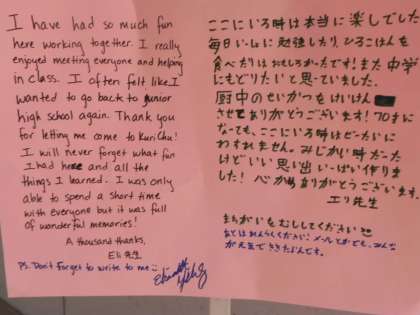 I have had so much fun
here working together. I really
enjoyed meeting everyone and helping
in class. I often felt like I
wanted to go back to junior
high school again. Thank you
for letting me come to Kurichu!
I will never forget what fun
I had here and all the
things I learned. I was only
able to spend a short time
with everyone but it was full
of wonderful memories!
A thousand thanks,
Eli 先生
P.S. Don't forget to write to me
ここにいる時は本当に楽しでした
毎日いっしに勉強したり、ひろごはんを
食べたりはおもしろかたです!また中学
にもどりたいと思っていました。
厨中のせいかつをけいけん
させてありがとうございます!70まに
なっても、ここにいる時はどーたいに
わすれません。みじかい時だった
けどいい思い出いーぱい作りま
した!心からありがとうございます。
エリ先生
まちがいをむししてください